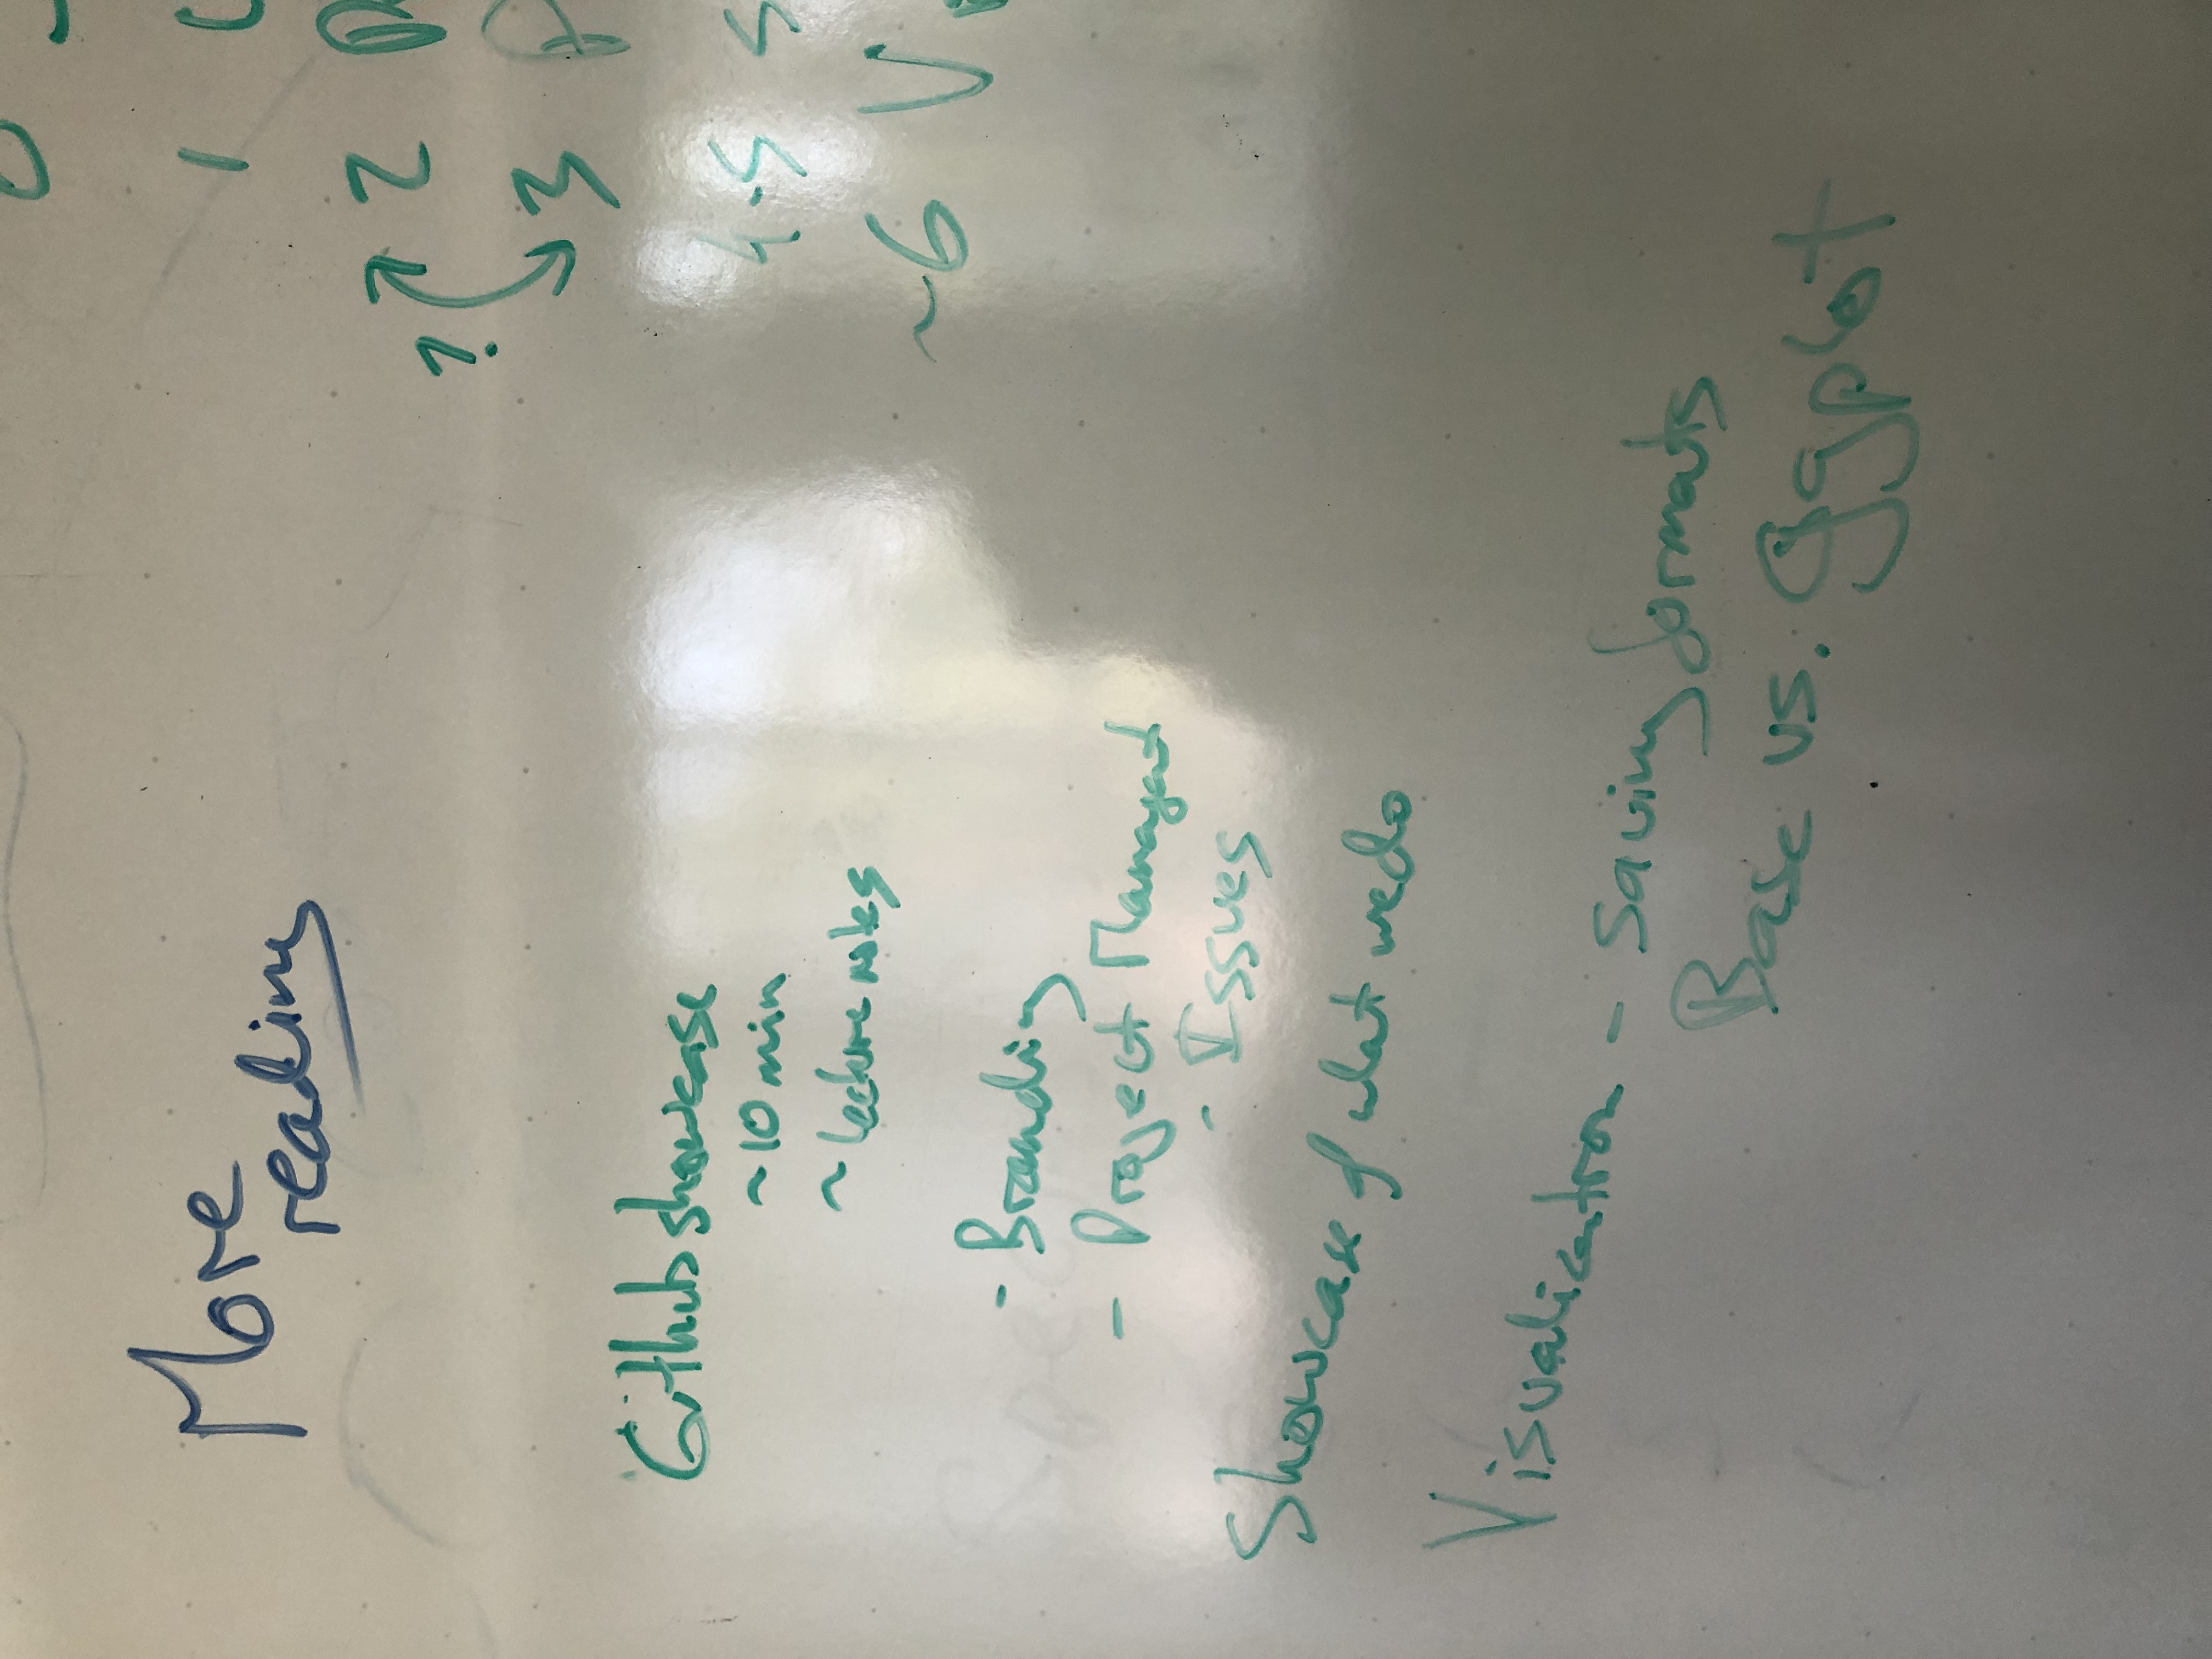 More
reading
Github showcase
~ 10 min
~ lecture notes
- Branding
- Project Managat
- Issues
Showcase of what we do
Visualization - saving formats
Base vs. ggplot
0
1
2
?
3
4-5 S
~6 V